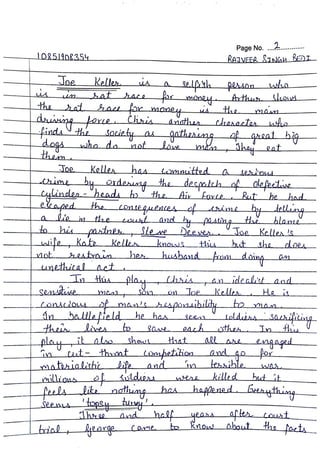 Page No. 2
10851908354 RAJVEER SINGH BEDI
Joe Keller is a selfish person who
is in rat race for money. Arthur shows
the rat race for money is the main
driving force. Chris another character who
finds the society as gathering of great big
dogs who do not love men, They eat
them.
Joe Keller has committed a serious
crime by ordering the despatch of defective
cylinder-heads to the Air Force. But he had
escaped the consequences of crime by telling
a lie in the court and by passing the blame
to his partner, Steve Deever. Joe Keller's
wife, Kate Keller knows this but she does
not restrain her husband from doing an
unethical act.
In this play, Chris, an idealist and
sensitive man, son on Joe Keller. He is
conscious of man's responsibility to man.
In battlefield he has seen soldiers sacrificing
their lives to save each other. In this
play, it also shows that all are engaged
in cut-throat competition and go for
materialistic life and in terrible war
millions of soldiers were killed but it
feels like nothing has happened. Everything
seems 'topsy turvy'.
Three and half years after court
trial, George came to know about the facts